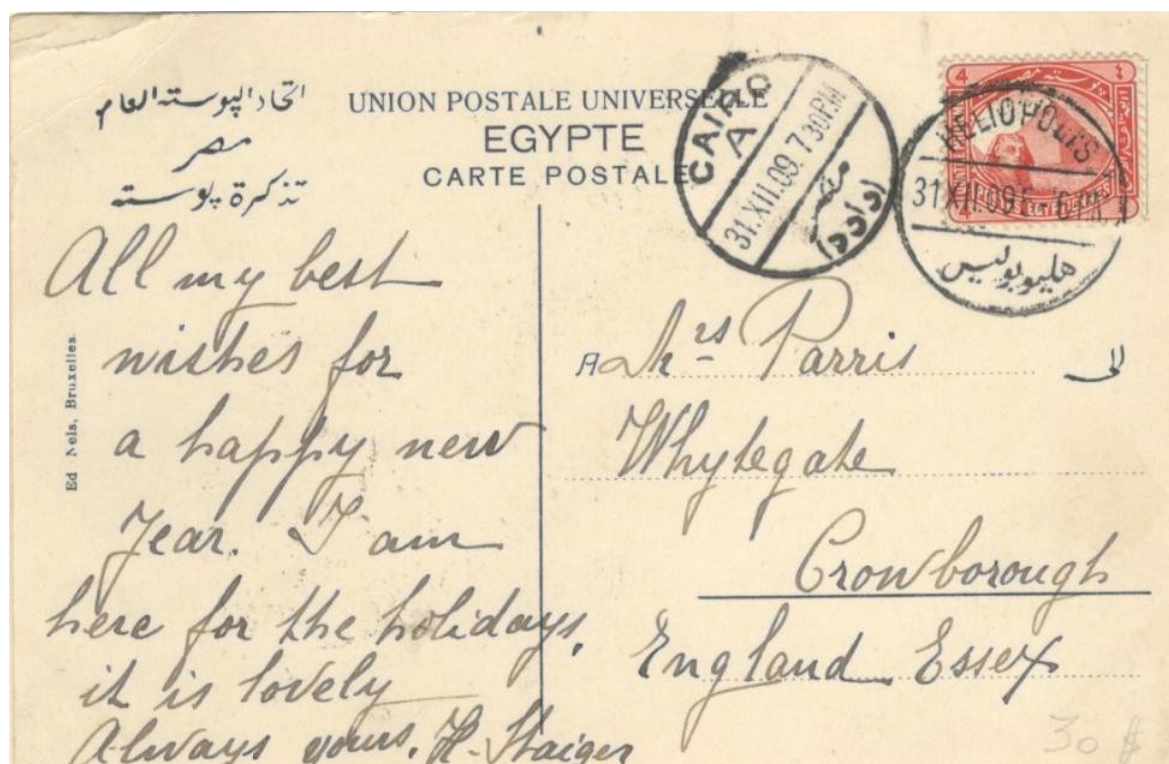 اتحاد البوسته العام
مصر
تذكرة بوسته
UNION POSTALE UNIVERSELLE
EGYPTE
CARTE POSTALE
CAIRO
A
31.XII.09.7 30PM
مصر
HELIOPOLIS
31.XII.09
هليوبوليس
4
All my best
wishes for
a happy new
Year. I am
here for the holidays,
it is lovely
Always yours, H. Staiger
Ed Nels, Bruxelles
A Mrs Parris
Whytegate
Crowborough
England Essex
30 $